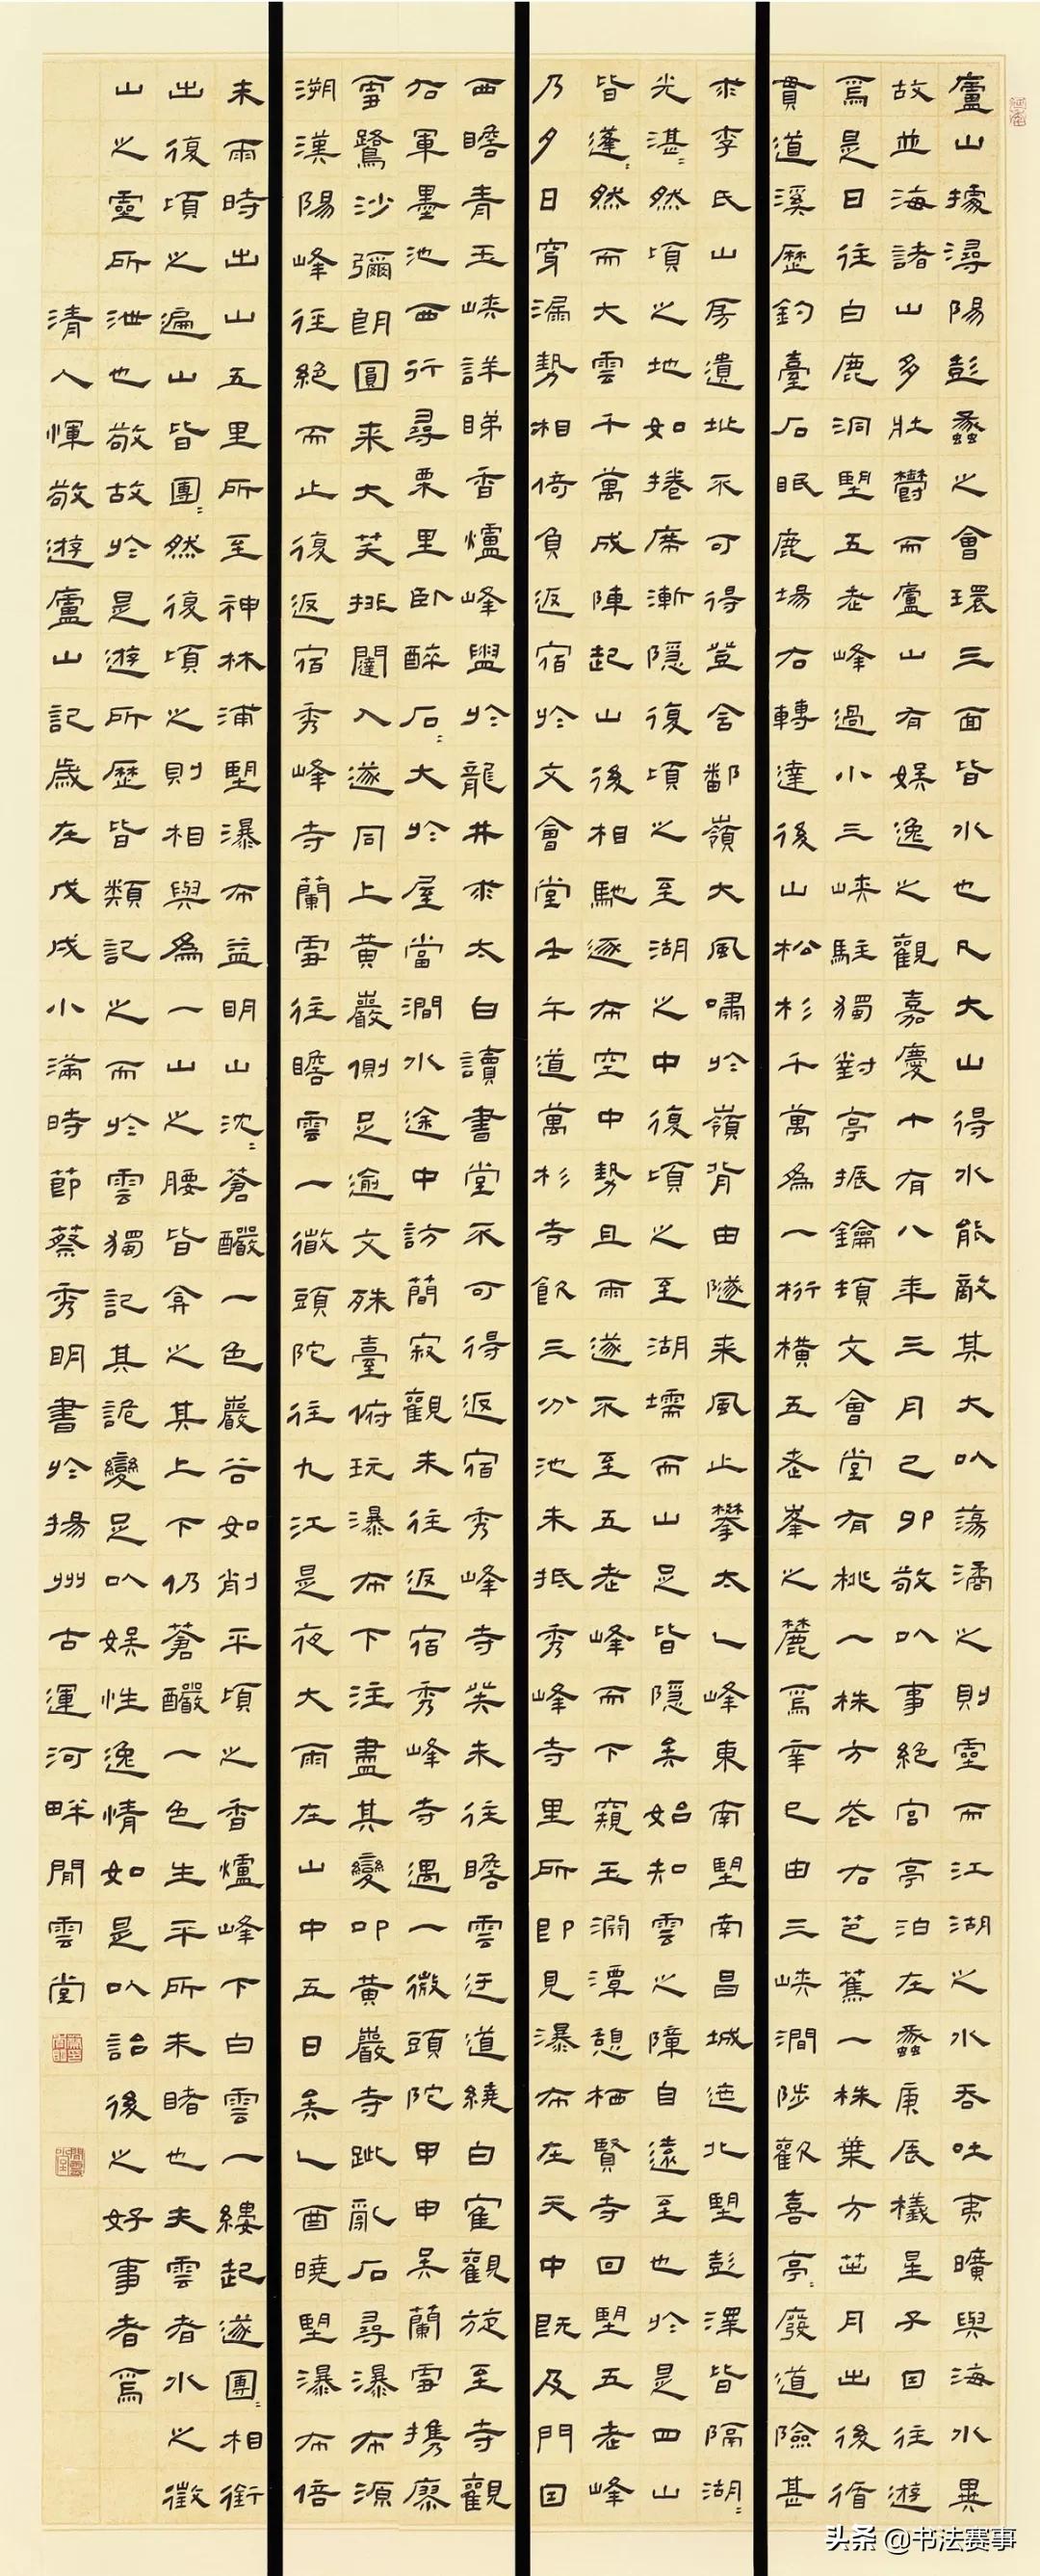 廬山據潯陽彭蠡之會環三面皆水也凡大山得水能敵其大以蕩潏之則靈而江湖之水吞吐夷曠與海水異
故並海諸山多壯鬱而廬山有娛逸之觀嘉慶十有八年三月己卯敬以事絕宮亭泊左蠡庚辰檥星子因往遊
焉是日往白鹿洞望五老峰過小三峽駐獨對亭振鑰頓文會堂有桃一株方花右芭蕉一株葉方茁月出後循
貫道溪歷釣臺石眠鹿場右轉達後山松杉千萬為一桁橫五老峯之麓焉辛巳由三峽澗陟歡喜亭亭廢道險甚
求李氏山房遺址不可得登含鄱嶺大風嘯於嶺背由隧来風止攀太乙峰東南望南昌城迤北望彭澤皆隔湖湖
光湛湛然頃之地如捲席漸隱復頃之至湖之中復頃之至湖壖而山足皆隱矣始知雲之障自遠至也於是四山
皆蓬蓬然而大雲千萬成陣起山後相馳逐布空中勢且雨遂不至五老峰而下窺玉淵潭憩栖賢寺回望五老峰
乃夕日穿漏勢相倚負返宿於文會堂壬午道萬杉寺飲三分池未抵秀峰寺里所即見瀑布在天中既及門因
西瞻青玉峽詳睇香爐峰盥於龍井求太白讀書堂不可得返宿秀峰寺癸未往瞻雲迂道繞白寉觀旋至寺觀
右軍墨池西行尋栗里臥醉石石大於屋當澗水途中訪簡寂觀未往返宿秀峰寺遇一微頭陀甲申吳蘭雪携廖
雪鷺沙彌朗圓来大笑排闥入遂同上黃巖側足逾文殊臺俯玩瀑布下注盡其變叩黃巖寺跐亂石尋瀑布源
溯漢陽峰徑絕而止復返宿秀峰寺蘭雪往瞻雲一微頭陀往九江是夜大雨在山中五日矣乙酉曉望瀑布倍
未雨時出山五里所至神林浦望瀑布益明山沈沈蒼釅一色巖谷如削平頃之香爐峰下白雲一縷起遂團團相銜
出復頃之遍山皆團團然復頃之則相與為一山之腰皆弇之其上下仍蒼釅一色生平所未睹也夫雲者水之徵
山之靈所泄也敬故於是遊所歷皆類記之而於雲獨記其詭變足以娛性逸情如是以詒後之好事者焉
清人惲敬遊廬山記歲在戊戌小滿時節蔡秀明書於揚州古運河畔閒雲堂
头条 @书法赛事